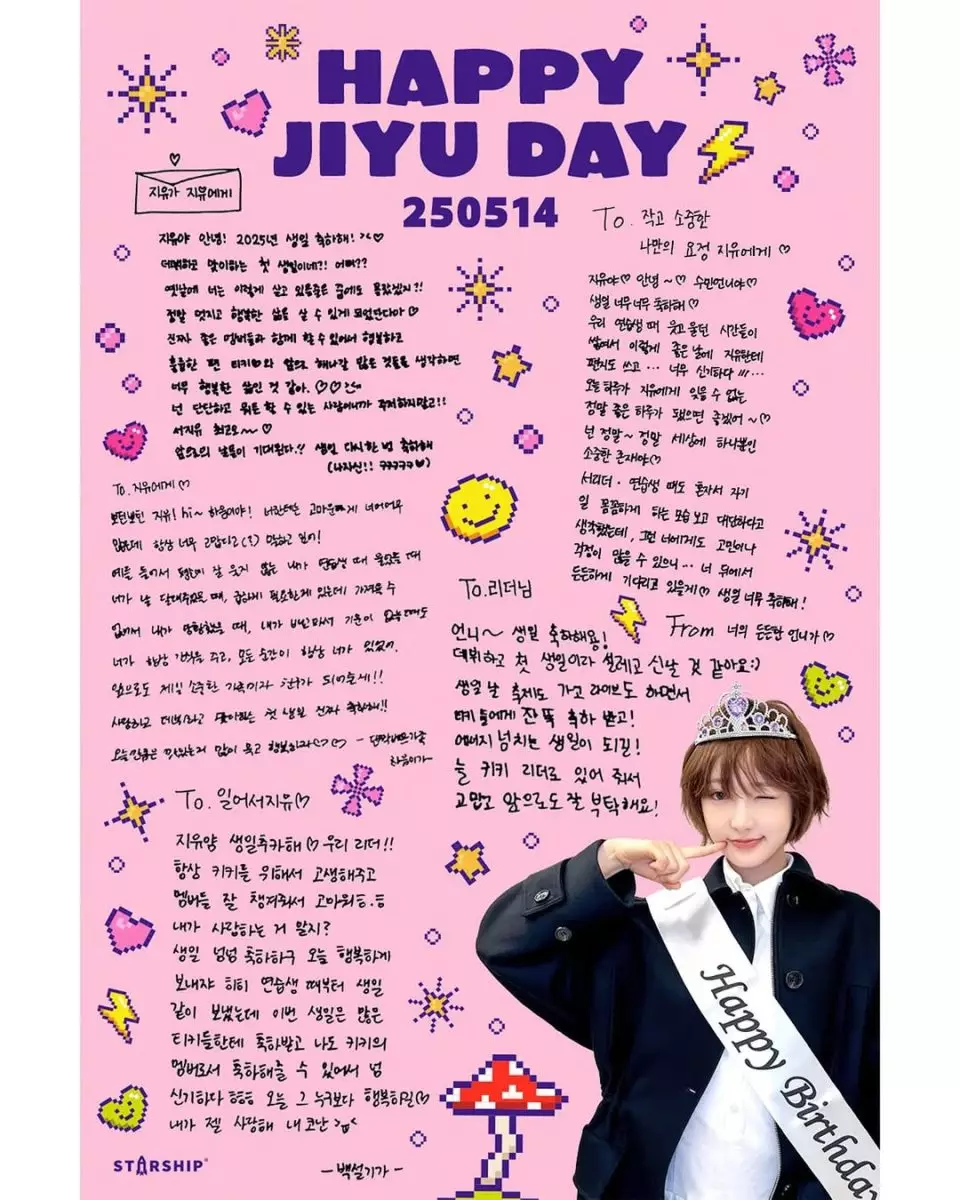 HAPPY
JIYU DAY
250514
지유가 지유에게
지유야 안녕! 2025년 생일 축하해! >< ♡
데뷔하고 맞이하는 첫 생일이네?! 어때??
옛날에 너는 이렇게 살고 있을줄은 꿈에도 몰랐겠지?!
정말 멋지고 행복한 삶을 살 수 있게 되었단다아 ♡
진짜 좋은 멤버들과 함께 할 수 있어서 행복하고
든든한 편 티키♡와 앞으로 해나갈 많은 것들을 생각하면
너무 행복한 삶인 것 같아. ♡♡
넌 단단하고 뭐든 할 수 있는 사람이니까 주저하지말고!!
서지유 최고오~ ♡
앞으로의 날들이 기대된다.!! 생일 다시한 번 축하해
(나자신!! ㅋㅋㅋㅋㅋ♥)
To. 지유에게 ♡
보던보던 지유! hi~ 하음이야! 너한테는 고마운게 너어어무
많은데 항상 너무 고맙다고 말하고 싶어!
예를 들어서 평소에 잘 웃지 않는 내가 연습생 때 울었을 때
너가 날 달래주었을 때, 급하게 필요한게 있는데 가져올 수
없어서 내가 당황했을 때, 내가 배고파서 기운이 없을때도
너가 항상 간식을 주고, 모든 순간이 항상 너가 있었어.
앞으로도 제일 소중한 가족이자 친구가 되어줄게!!
사랑하고 데뷔하고 맞이하는 첫 생일 진짜 축하해!!
오늘만큼은 맛있는거 많이 먹고 행복하자♡♡ - 단짝버튼가족
하음이가-
To. 작고 소중한
나만의 요정 지유에게 ♡
지유야♡ 안녕~♡ 수민언니야♡
생일 너무너무 축하해♡
우리 연습생 때 웃고 울던 시간들이
쌓여서 이렇게 좋은 날에 지유한테
편지도 쓰고 … 너무 신기하다 !!! …
오늘 하루가 지유에게 잊을 수 없는
정말 좋은 하루가 됐으면 좋겠어~♡
넌 정말~ 정말 세상에 하나뿐인
소중한 존재야♡
서리더 · 연습생 때도 혼자서 자기
일 꼼꼼하게 하는 모습 보고 대단하다고
생각했는데, 그런 너에게도 고민이나
걱정이 많을 수 있으니… 너 뒤에서
든든하게 기다리고 있을게♡ 생일 너무 축하해!
From 너의 든든한 언니가♡
To.리더님
언니~ 생일 축하해용!
데뷔하고 첫 생일이라 설레고 신날 것 같아요:)
생일 날 축제도 가고 라이브도 하면서
티키들에게 잔뜩 축하 받고!
에너지 넘치는 생일이 되길!
늘 키키 리더로 있어 줘서
고맙고 앞으로도 잘 부탁해요!
To. 일어서지유♡
지유양 생일추카해♡ 우리 리더!!
항상 키키를 위해서 고생해주고
멤버들 잘 챙겨줘서 고마워ㅎ.ㅎ
내가 사랑하는 거 알지?
생일 넘넘 축하하구 오늘 행복하게
보내쟈 히히 연습생 때부터 생일
같이 보냈는데 이번 생일은 많은
티키들한테 축하받고 나도 키키의
멤버로서 축하해줄 수 있어서 넘
신기하다 ㅎㅎㅎ 오늘 그 누구보다 행복하길♡
내가 젤 사랑해 내 코난
-백설기가-
Happy Birthday
STARSHIP